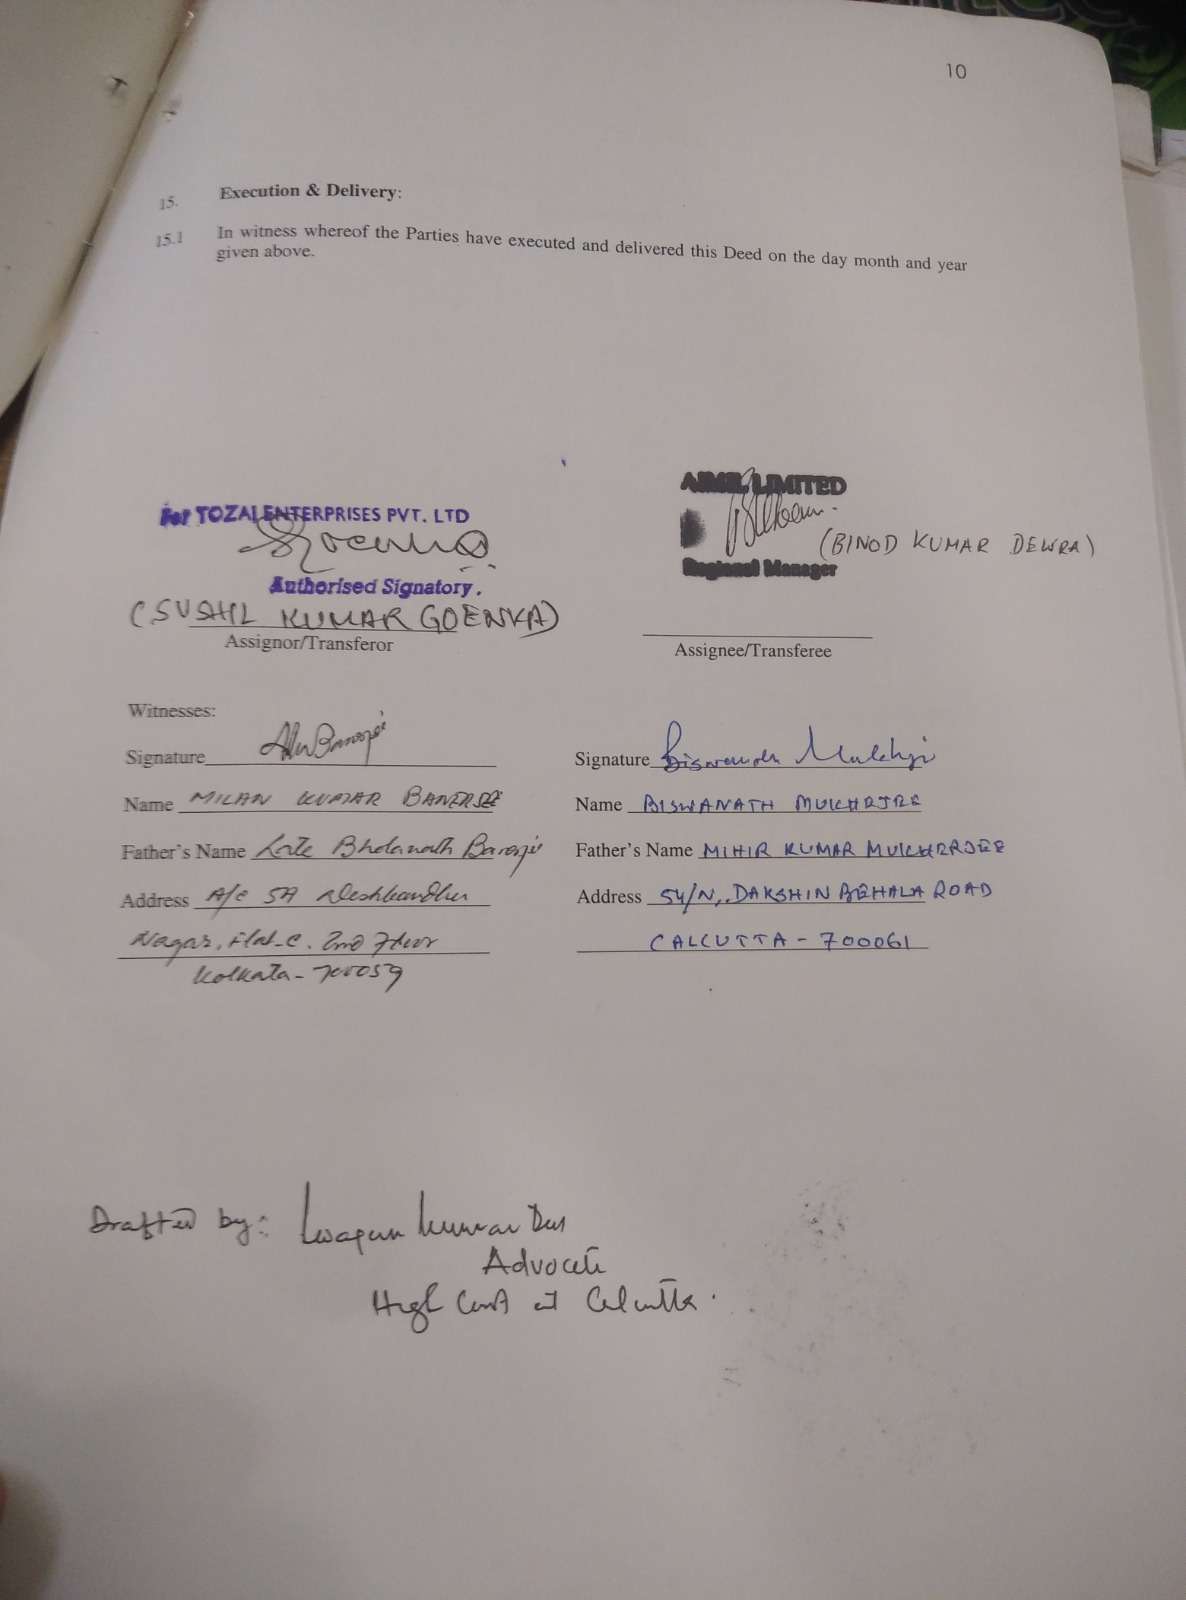 10
15. Execution & Delivery:
15.1 In witness whereof the Parties have executed and delivered this Deed on the day month and year
given above.
For TOZAI ENTERPRISES PVT. LTD
Authorised Signatory.
(SUSHIL KUMAR GOENKA)
Assignor/Transferor
LIMITED
(BINOD KUMAR DEWRA)
Regional Manager
Assignee/Transferee
Witnesses:
Signature
Name MILAN KUMAR BANERJEE
Father's Name Late Bholanath Banerjee
Address A/c 5A Deshbandhu
Nagar, Flat-C. 2nd Floor
Kolkata-700059
Signature Biswanath Mukherji
Name BISWANATH MUKHERJEE
Father's Name MIHIR KUMAR MUKHERJEE
Address 54/N, DAKSHIN BEHALA ROAD
CALCUTTA - 700061
Drafted by: Swapan Kumar Das
Advocate
High Court at Calcutta.